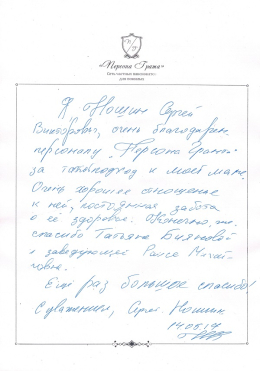 «Персона Гранта»
Я Ношин Сергей
Викторович, очень благодарен
персоналу "Персона Гранта"
за подход к моей маме.
Очень хорошее отношение
к ней, постоянная забота
о её здоровье. Конечно, же,
спасибо Татьяне
и заведующей Раисе
Ещё раз большое спасибо!
С уважением, Серг. Ношин
14.05.17